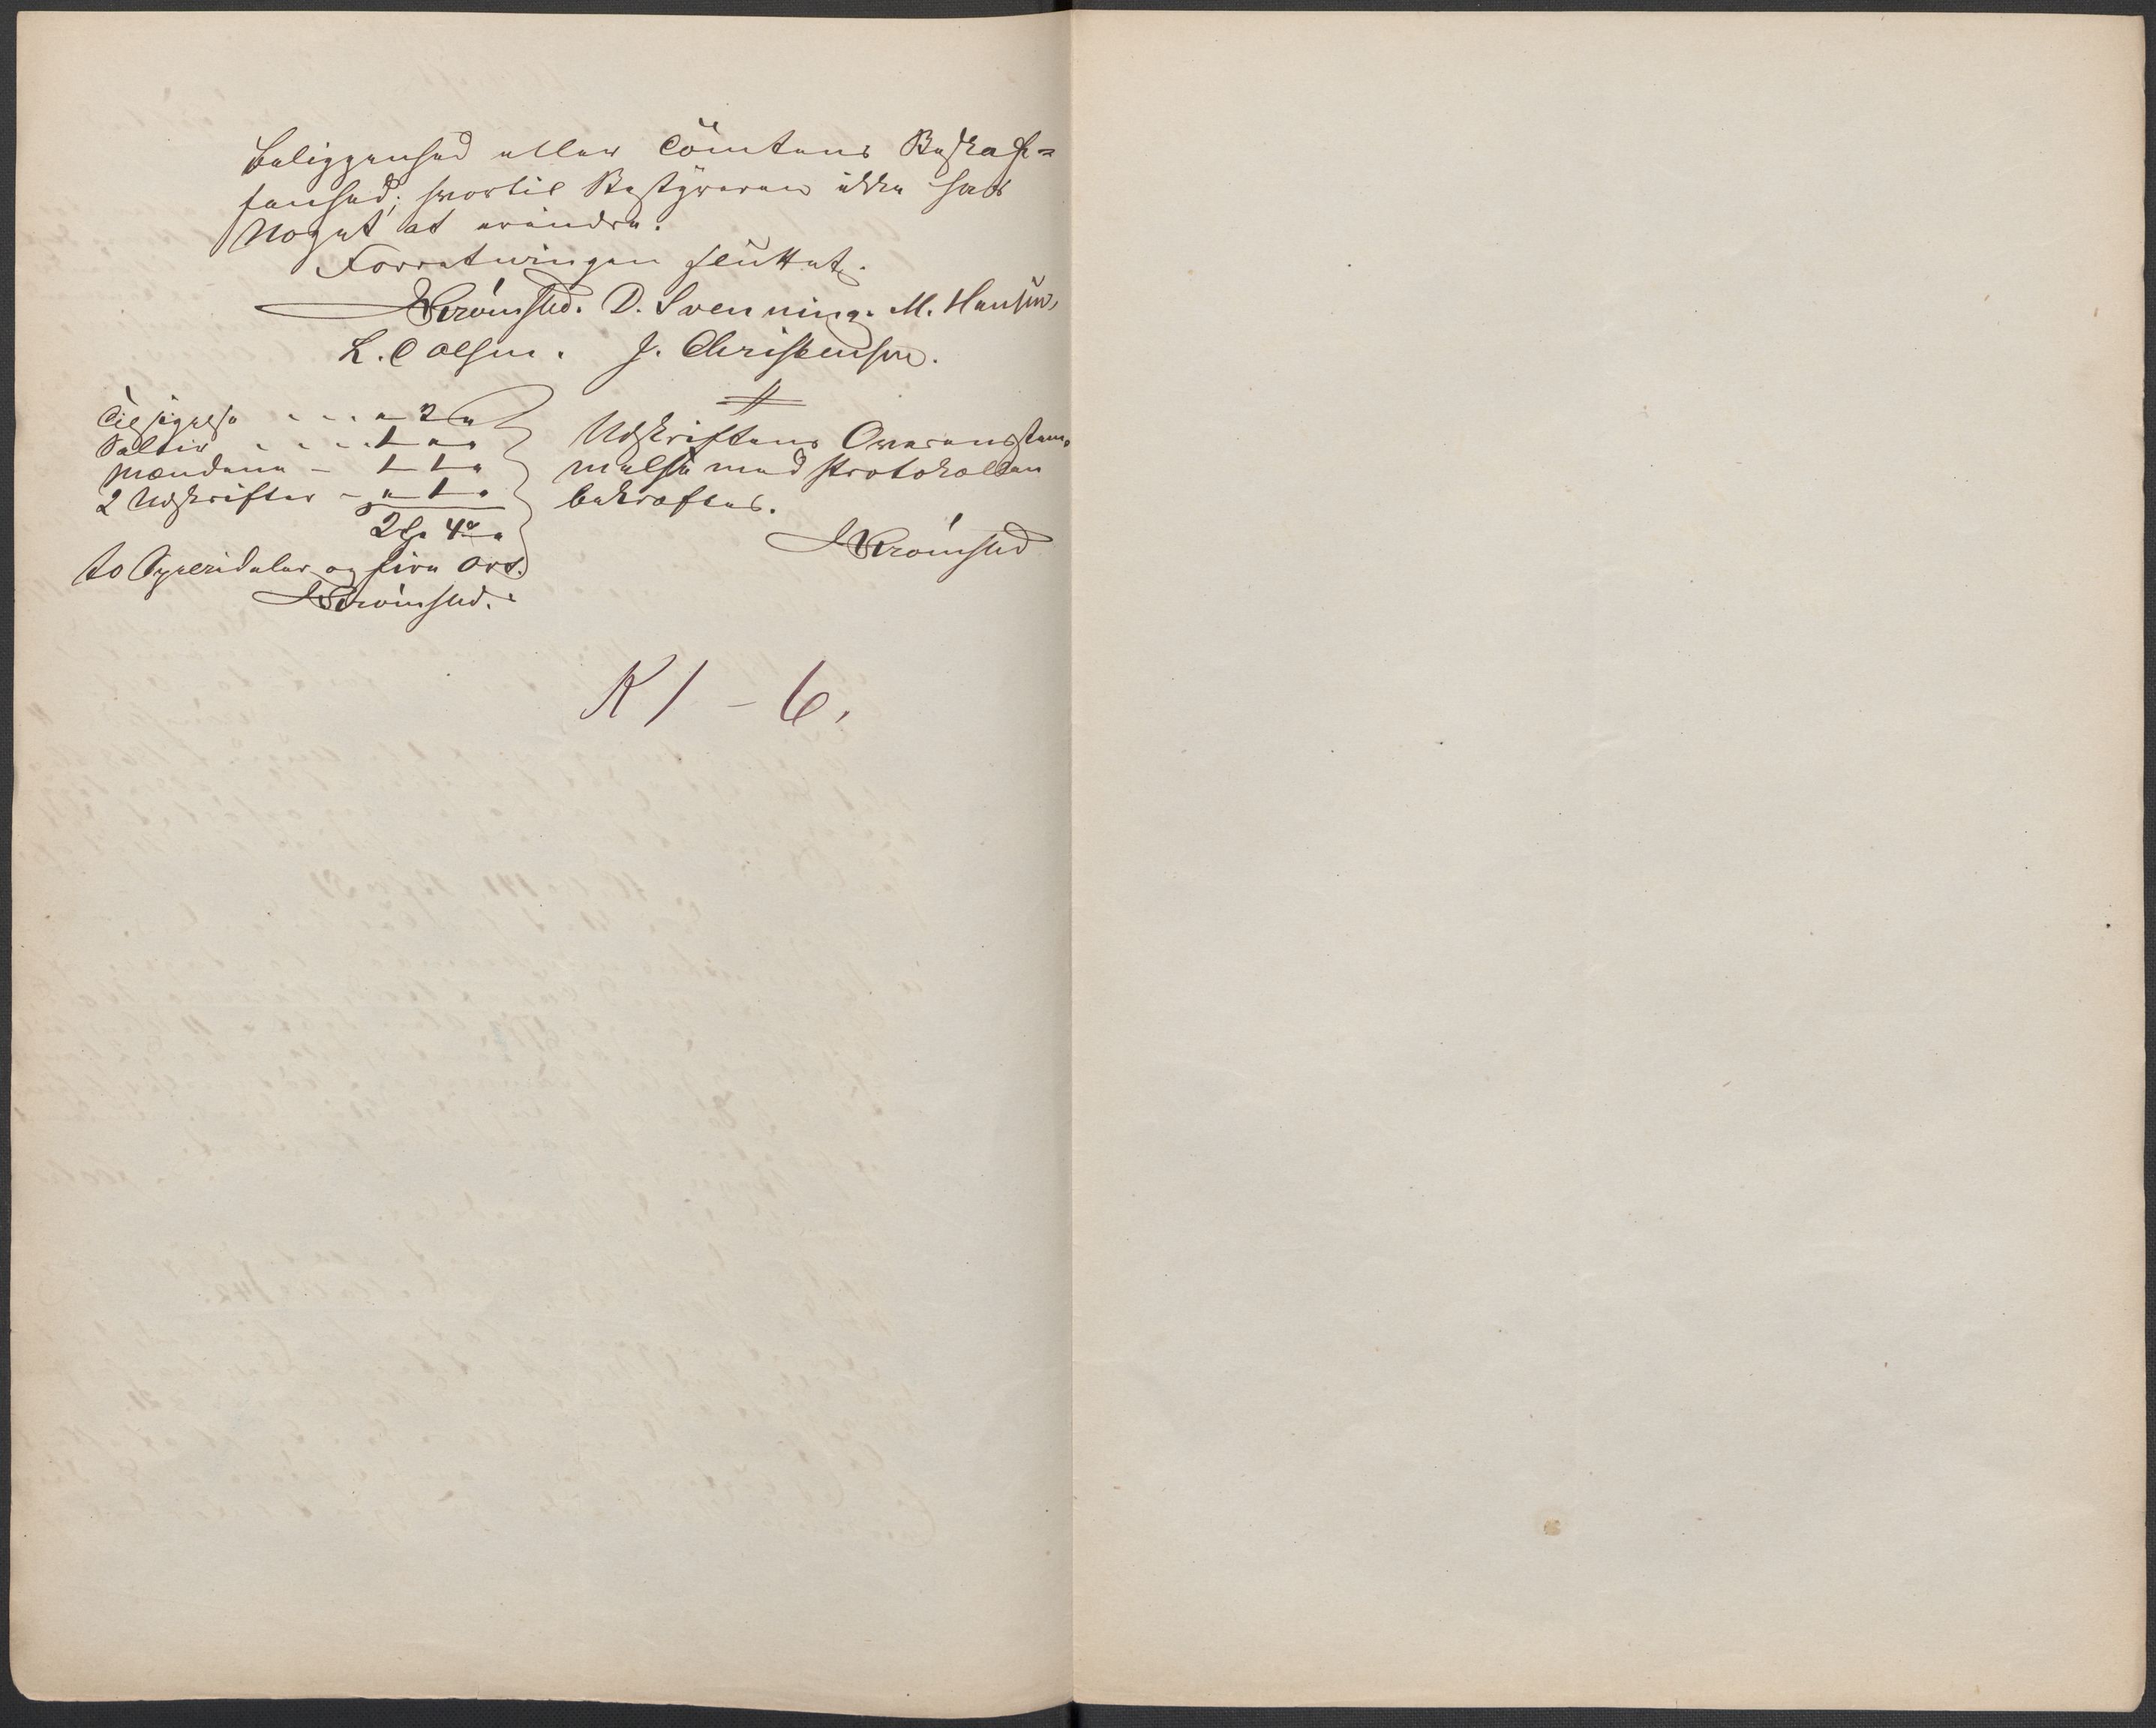 Beliggenhed eller Tomtens Beskaf=
fenhed; hvortil Bestyreren ikke hat
Noget at erindre.
Forretningen sluttet.
D. Svenning. M. Hansen,
L. C Olsen. J. Christensen.
Tilsigelse - - - " 2 "
Salair - - - - 1 " "
Mændene - 1 1 "
2 Udskrifter - " 1 "
2 Sp 4 o "
to Speciedaler og fire Ort.
Udskriftens Overensstem-
melse med Protokollen
bekræftes.
K 1 - 6.